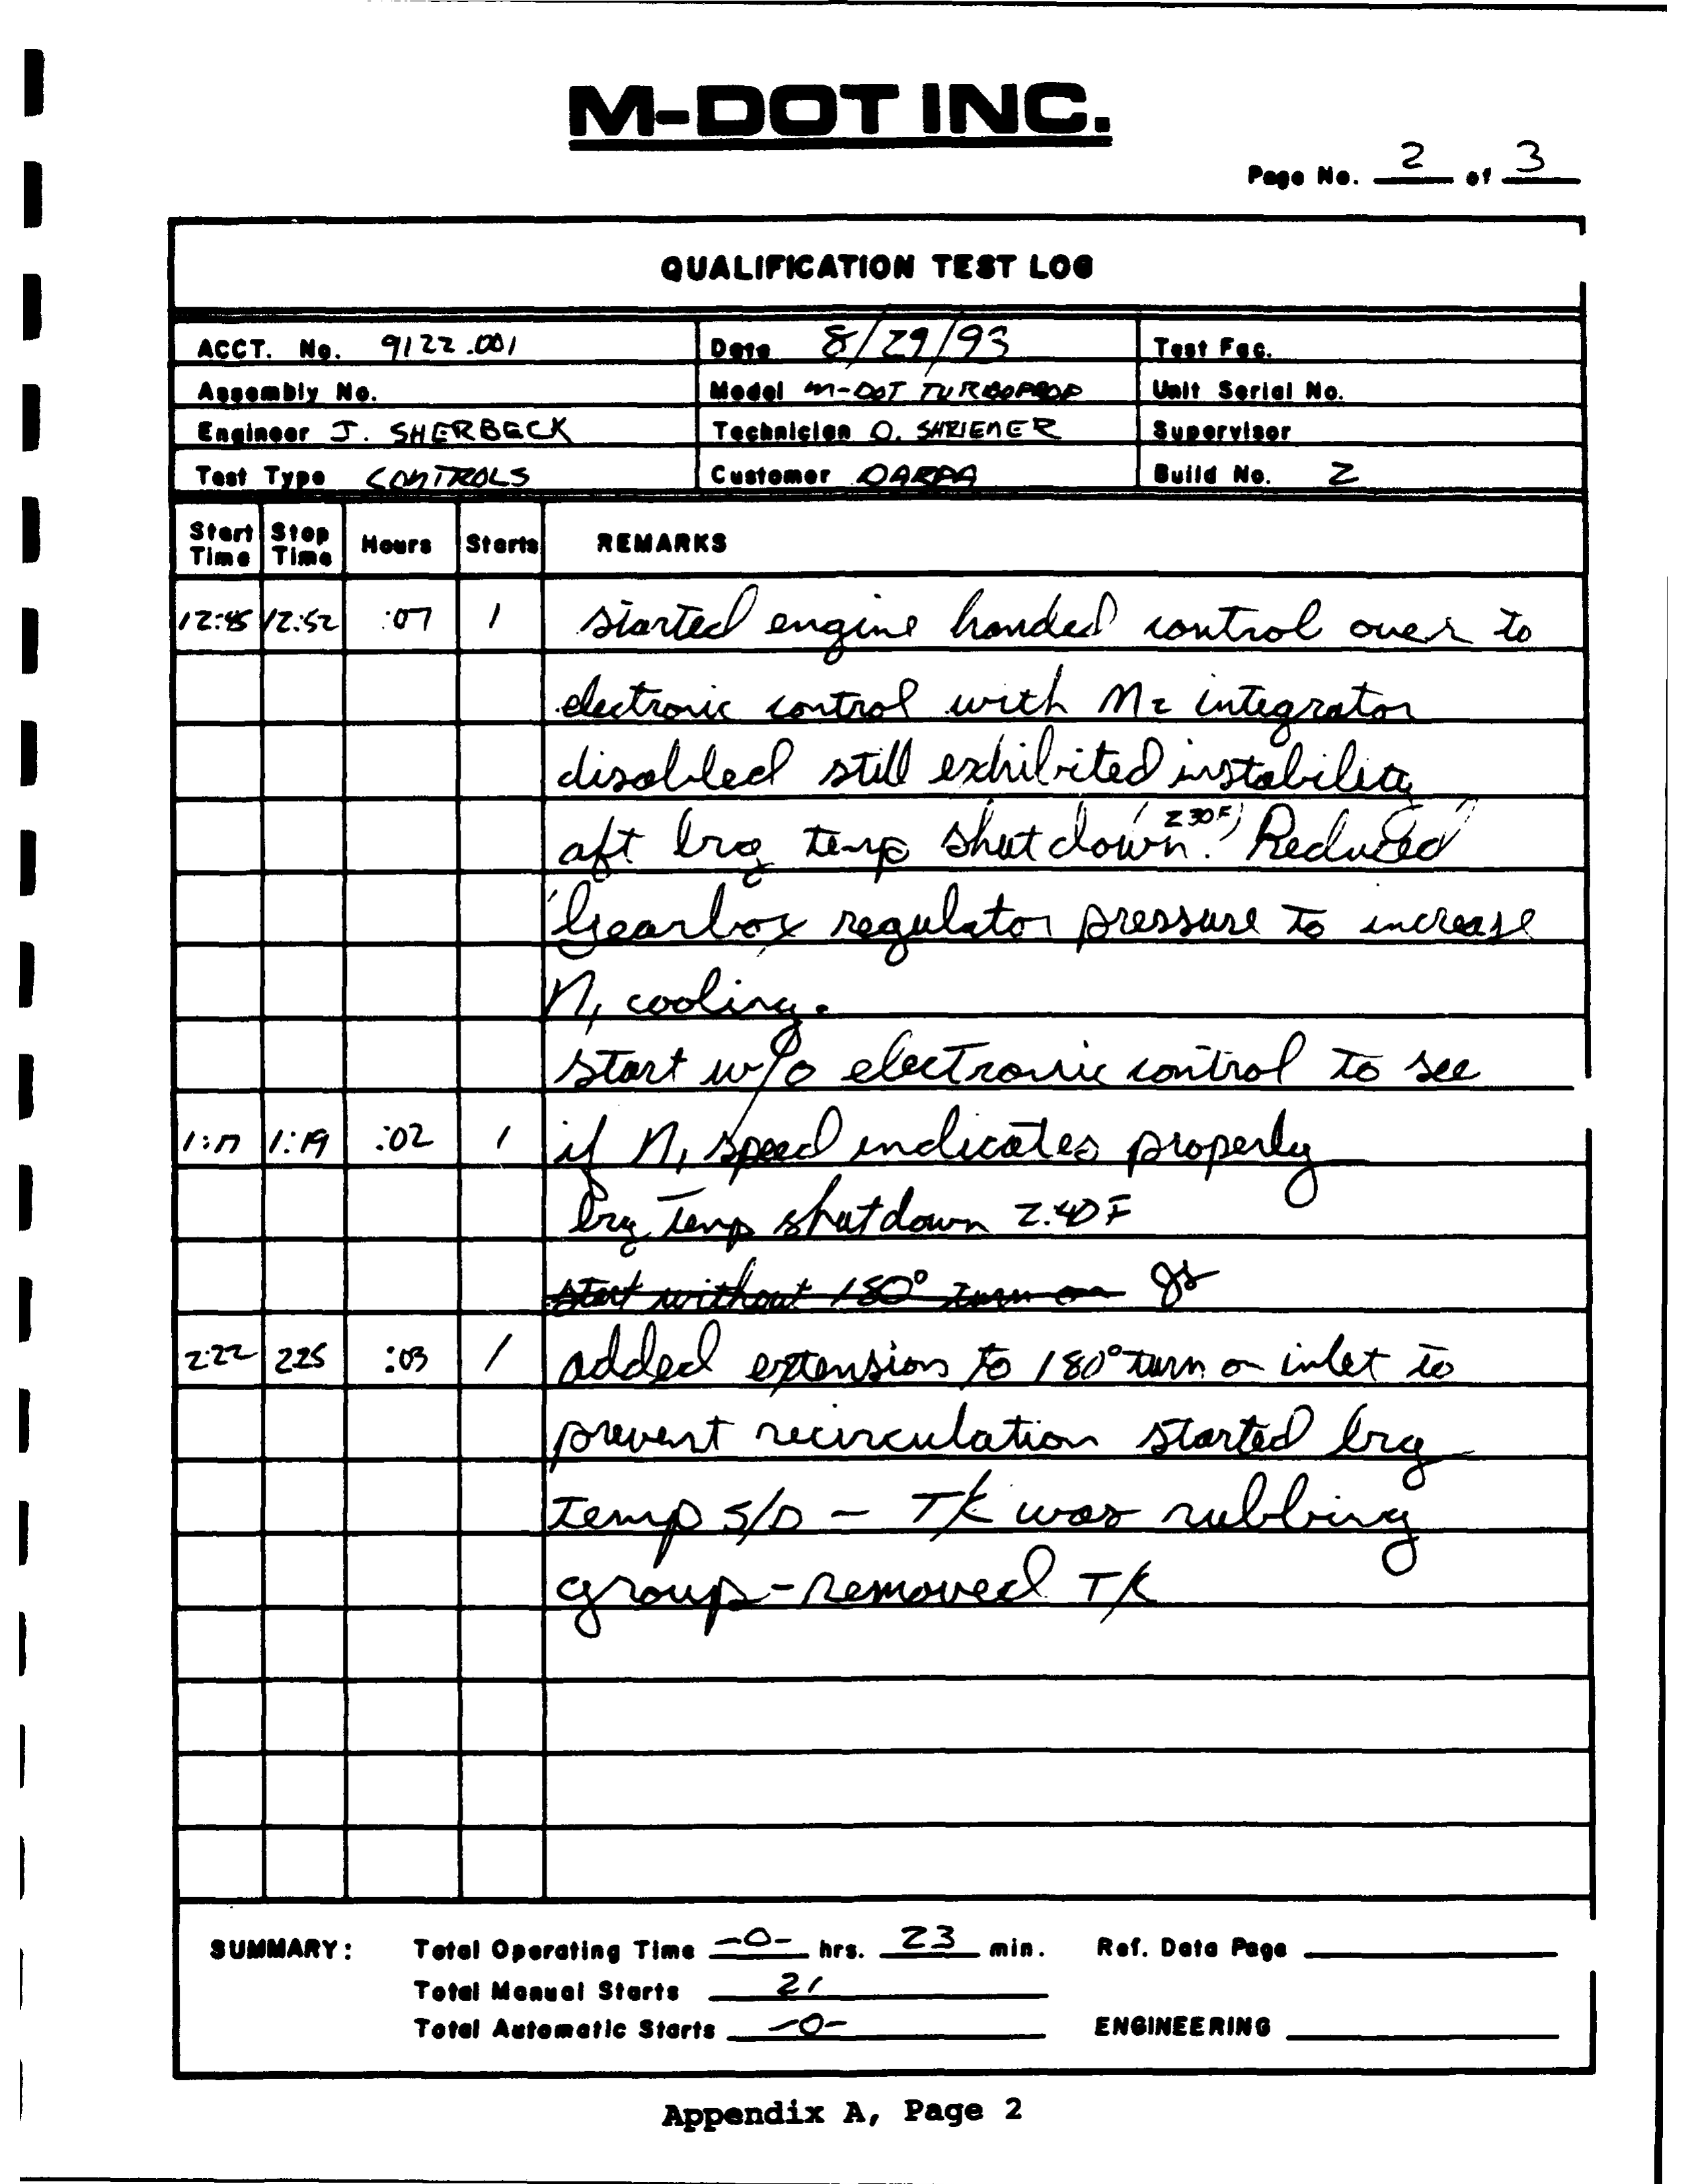 M-DOT INC.
Page No. 2 of 3
QUALIFICATION TEST LOG
ACCT. No. 9122.001 Date 8/29/93 Test Fac.
Assembly No. Model M-DOT TURBOPROP Unit Serial No.
Engineer J. SHERBECK Technician D. SHRIENER Supervisor
Test Type CONTROLS Customer DARPA Build No. 2
Start Time Stop Time Hours Starts REMARKS
12:45 12:52 :07 1 started engine handed control over to
electronic control with N2 integrator
disabled still exhibited instability
aft brg temp shutdown (230F). Reduced
Gearbox regulator pressure to increase
N1 cooling.
start w/o electronic control to see
1:17 1:19 :02 1 if N1 speed indicates properly
brg temp shutdown 240F
start without 180° turn on JS
2:22 225 :03 1 added extension to 180° turn on inlet to
prevent recirculation started brg
temp S/D - T/C was rubbing
group - removed T/C
SUMMARY: Total Operating Time -0- hrs. 23 min. Ref. Data Page
Total Manual Starts 21
Total Automatic Starts -0- ENGINEERING
Appendix A, Page 2